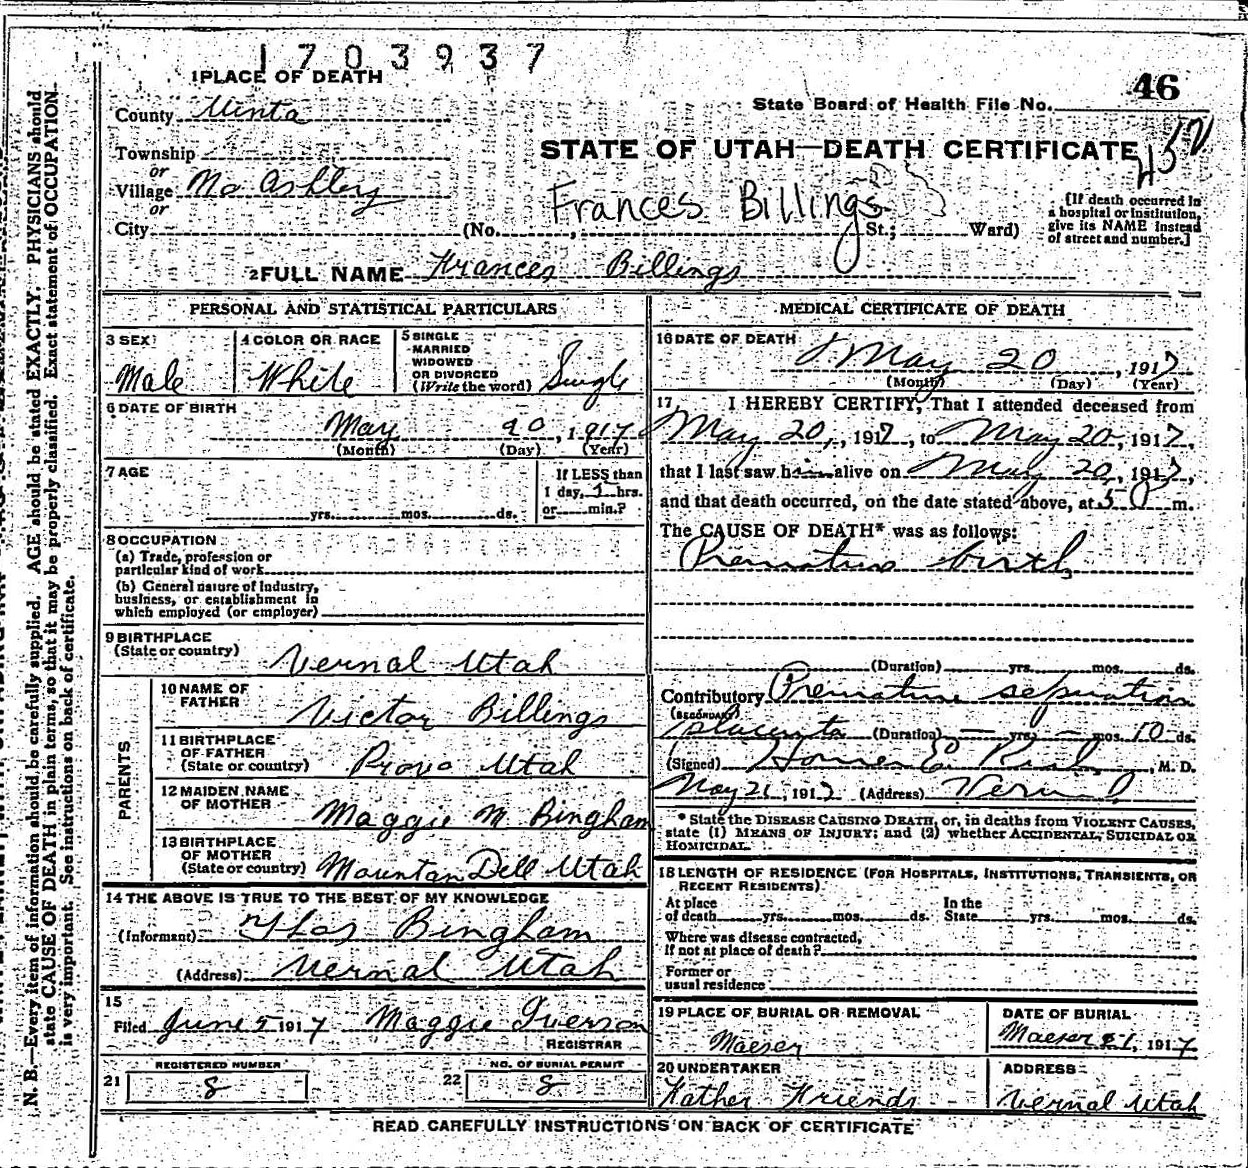 1703937
1 PLACE OF DEATH
46
County Uinta
State Board of Health File No.
Township
STATE OF UTAH—DEATH CERTIFICATE
or
Village Mo Ashley
Frances Billings
or
City (No. St.; Ward)
[If death occurred in
a hospital or institution,
give its NAME instead
of street and number.]
2 FULL NAME Frances Billings
PERSONAL AND STATISTICAL PARTICULARS
3 SEX
Male
4 COLOR OR RACE
White
5 SINGLE
MARRIED
WIDOWED
OR DIVORCED
(Write the word) Single
6 DATE OF BIRTH
May 20, 1917
(Month) (Day) (Year)
7 AGE
yrs. mos. ds.
If LESS than
1 day, 1 hrs.
or min.?
8 OCCUPATION
(a) Trade, profession or
particular kind of work
(b) General nature of industry,
business, or establishment in
which employed (or employer)
9 BIRTHPLACE
(State or country)
Vernal Utah
PARENTS
10 NAME OF
FATHER
Victor Billings
11 BIRTHPLACE
OF FATHER
(State or country) Provo Utah
12 MAIDEN NAME
OF MOTHER
Maggie M Bingham
13 BIRTHPLACE
OF MOTHER
(State or country) Mountan Dell Utah
14 THE ABOVE IS TRUE TO THE BEST OF MY KNOWLEDGE
(Informant) Thos Bingham
(Address) Vernal Utah
15
Filed June 5 1917 Maggie Iverson
REGISTRAR
REGISTERED NUMBER
21 8
NO. OF BURIAL PERMIT
22 8
MEDICAL CERTIFICATE OF DEATH
16 DATE OF DEATH
May 20, 1917
(Month) (Day) (Year)
17 I HEREBY CERTIFY, That I attended deceased from
May 20, 1917, to May 20, 1917,
that I last saw him alive on May 20, 1917,
and that death occurred, on the date stated above, at m.
The CAUSE OF DEATH* was as follows:
Premature birth
(Duration) yrs. mos. ds.
Contributory Premature separation
(SECONDARY)
placenta (Duration) — yrs. — mos. 10 ds.
(Signed) Homer E Rich, M. D.
May 21, 1917 (Address) Vernal
* State the DISEASE CAUSING DEATH, or, in deaths from VIOLENT CAUSES,
state (1) MEANS OF INJURY; and (2) whether ACCIDENTAL, SUICIDAL OR
HOMICIDAL.
18 LENGTH OF RESIDENCE (FOR HOSPITALS, INSTITUTIONS, TRANSIENTS, OR
RECENT RESIDENTS)
At place
of death yrs. mos. ds.
In the
State yrs. mos. ds.
Where was disease contracted,
if not at place of death?
Former or
usual residence
19 PLACE OF BURIAL OR REMOVAL
Maeser
DATE OF BURIAL
Maeser 21, 1917
20 UNDERTAKER
Father Friends
ADDRESS
Vernal Utah
READ CAREFULLY INSTRUCTIONS ON BACK OF CERTIFICATE
N. B.—Every item of information should be carefully supplied. AGE should be stated EXACTLY. PHYSICIANS should
state CAUSE OF DEATH in plain terms, so that it may be properly classified. Exact statement of OCCUPATION
is very important. See instructions on back of certificate.